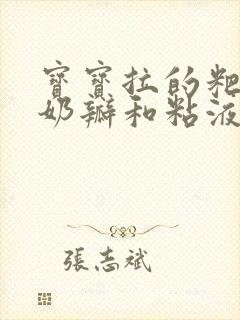 寶寶拉的粑
奶瓣和粘液
張志斌